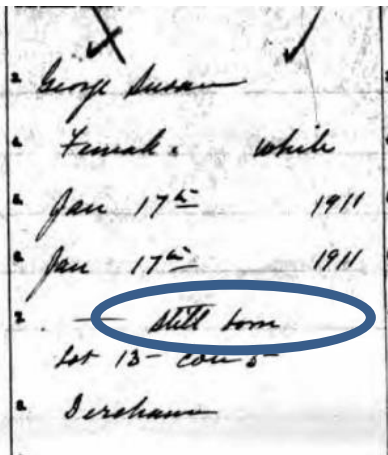 George Susan
Female. White
Jan 17th 1911
Jan 17th 1911
— Still born
Lot 13 - Con 5 -
Dereham